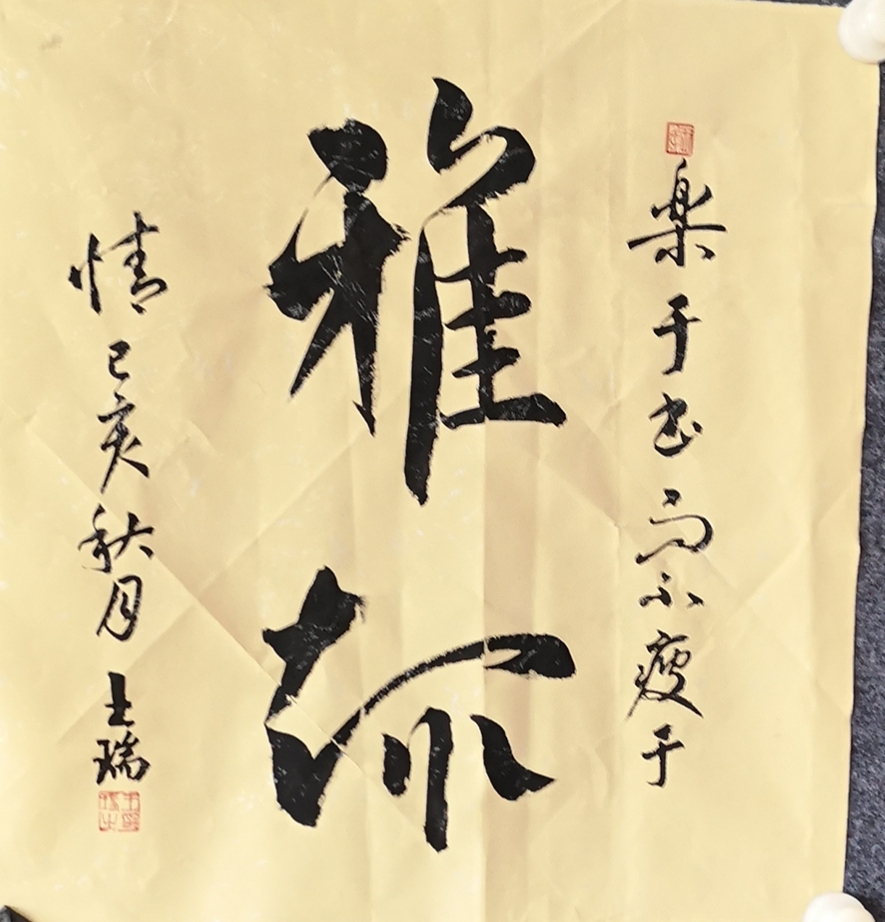 楽于书而不瘦于
雅
情己亥秋月士瑞